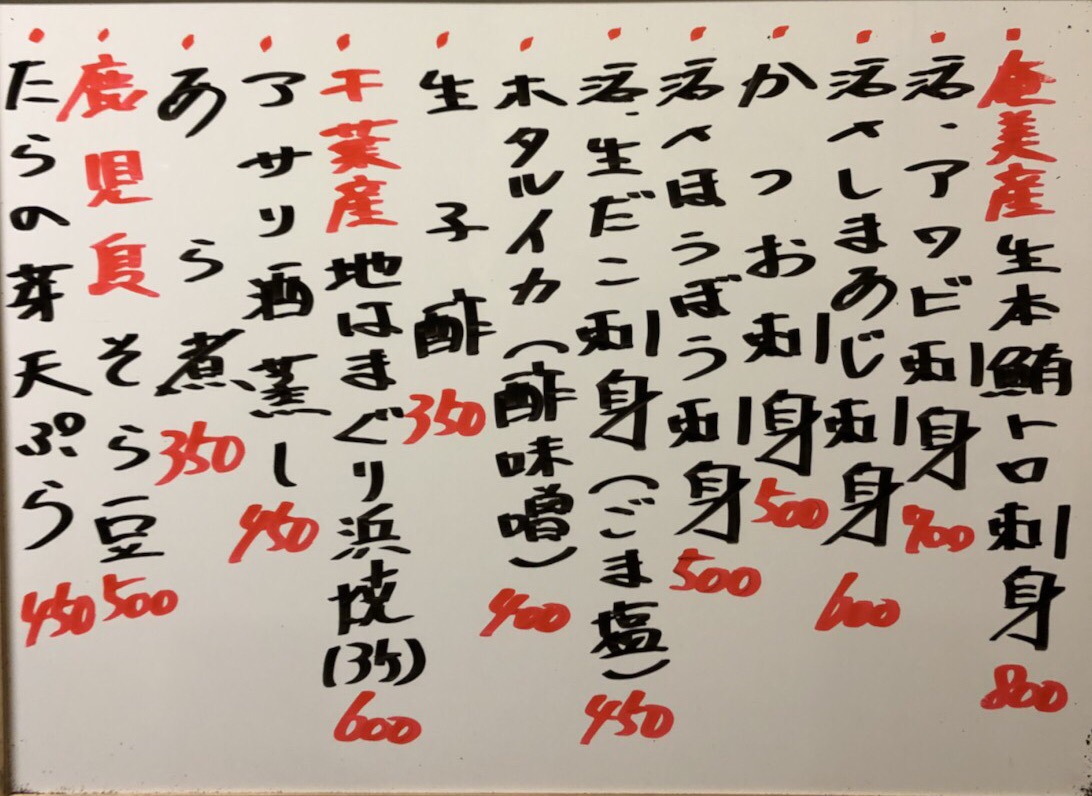 奄美産生本鮪トロ刺身 800
活・アワビ刺身 700
活〆しまあじ刺身 600
かつお刺身 500
活〆ほうぼう刺身 500
活・生だこ刺身(ごま塩) 450
ホタルイカ(酢味噌) 400
生子酢 350
千葉産地はまぐり浜焼(3ヶ) 600
アサリ酒蒸し 450
あら煮 350
鹿児島そら豆 500
たらの芽天ぷら 450